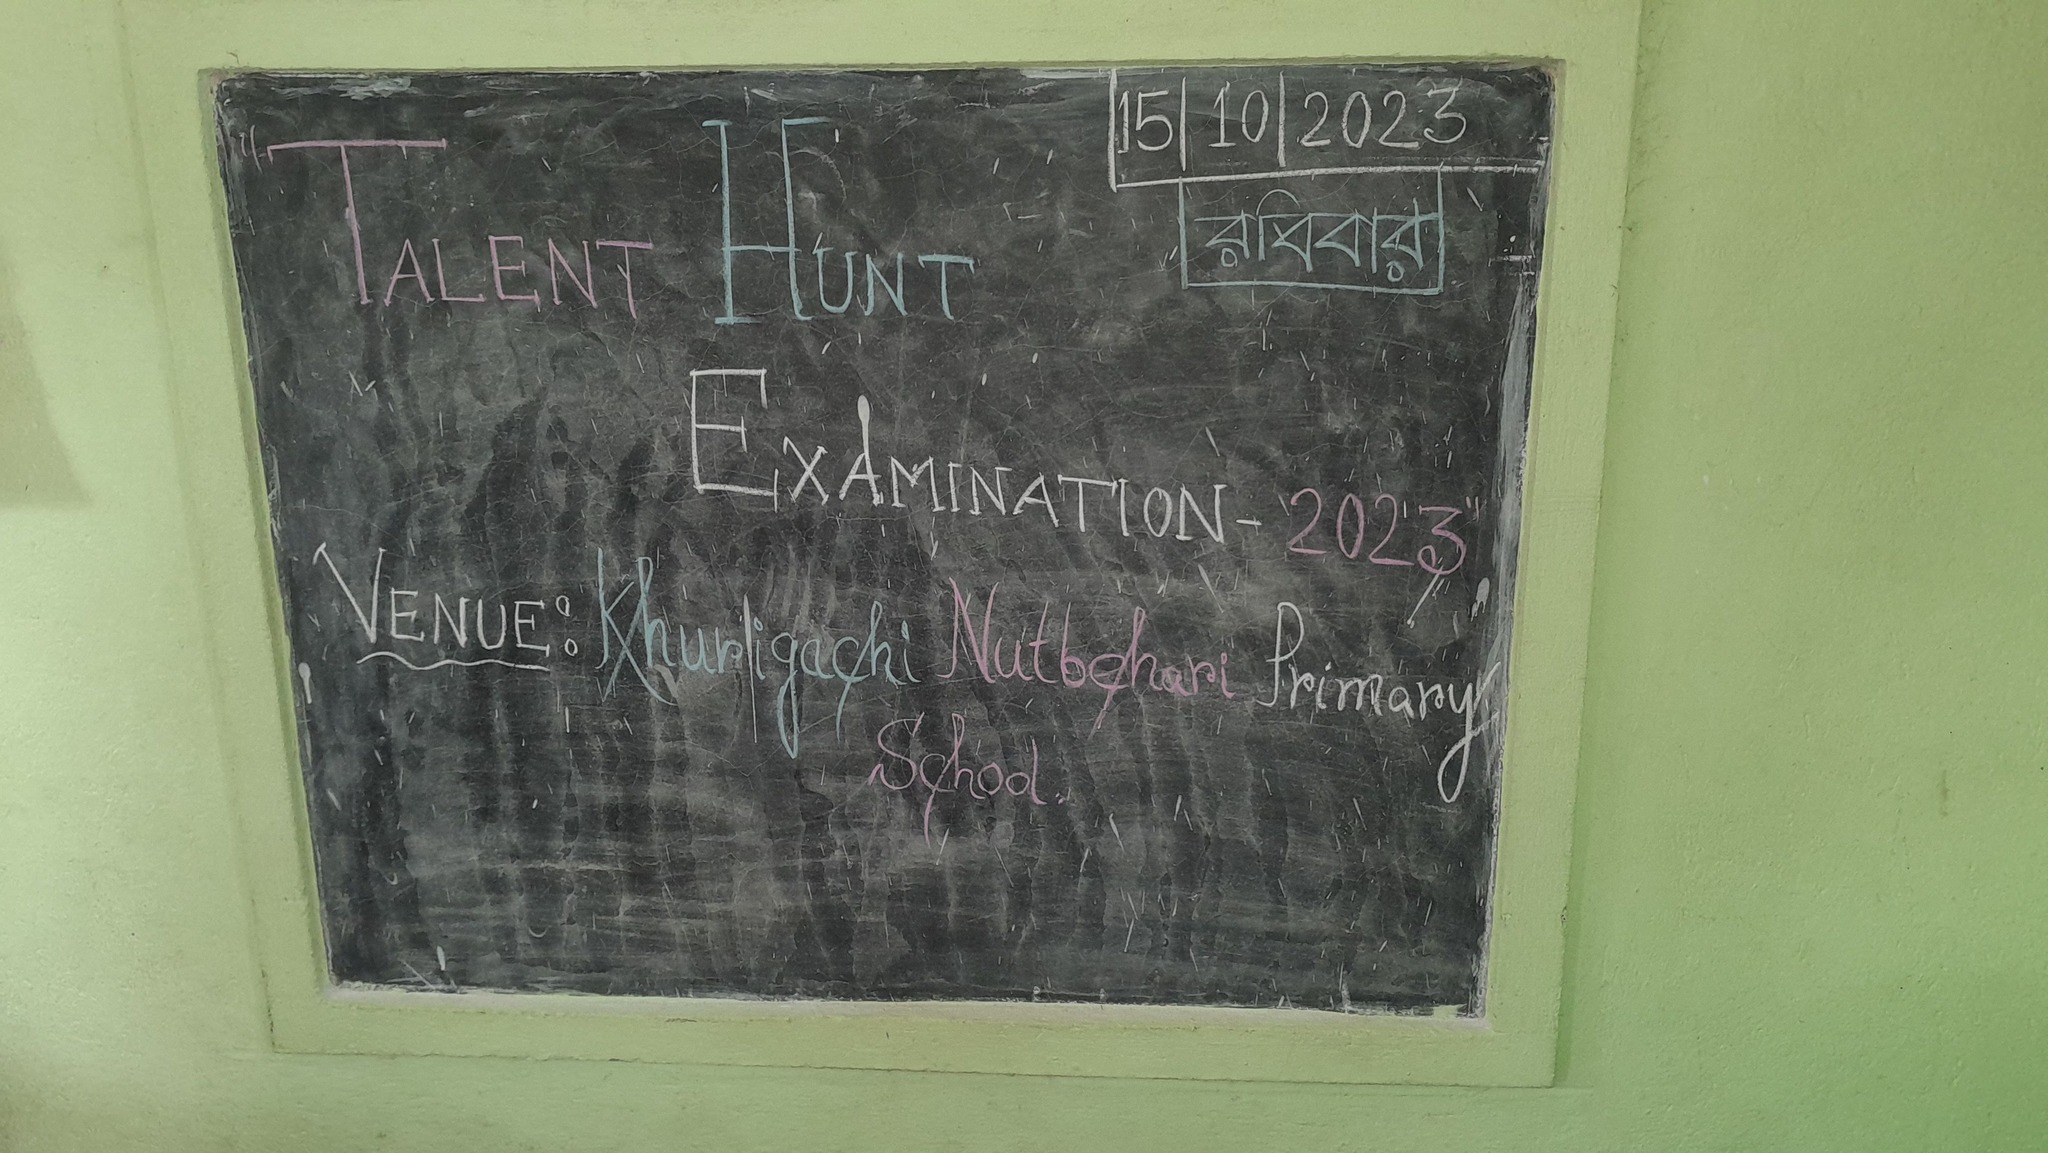 15|10|2023
রবিবার
TALENT HUNT
EXAMINATION- "2023"
VENUE: Khurligachi Nutbehari Primary
School.